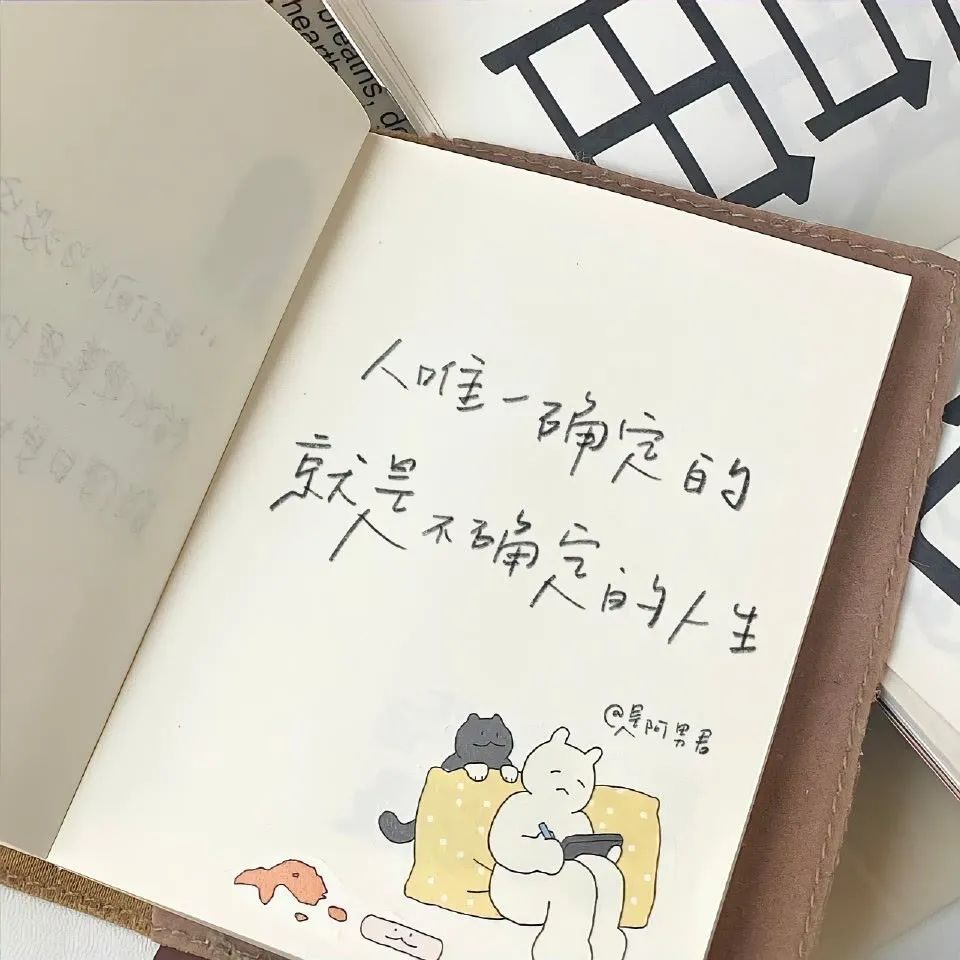 breathes, de
hearth
人唯一确定的
就是不确定的人生
@是阿男君